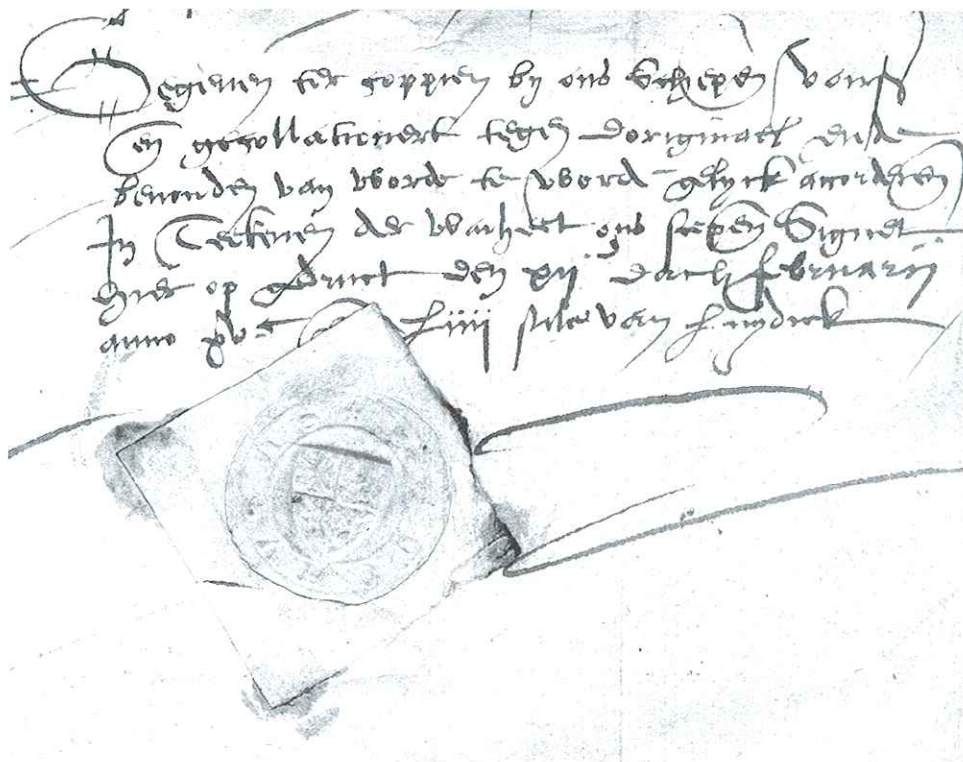 Gegeven ter coppien by ons Schepen vors
en gecollationeert tegen doriginael ende
bevonden van worde te word gelyck accorderen
In Teekenen der waerheet ons scepen Signet
hier op gedruct den xij dach februarij
anno xvc Liiij stile van